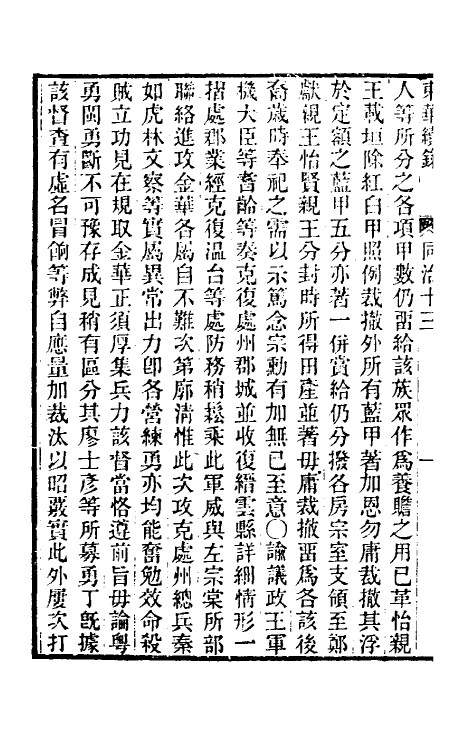 東華續錄　同治十三　一
人等所分之各項甲數仍畱給該族眾作爲養贍之用已革怡親
王載垣除紅白甲照例裁撤外所有藍甲著加恩勿庸裁撤其浮
於定額之藍甲五分亦著一併賞給仍分撥各房宗室支領至鄭
獻親王怡賢親王分封時所得田產並著毋庸裁撤畱爲各該後
裔歲時奉祀之需以示篤念宗勳有加無已至意○諭議政王軍
機大臣等耆齡等奏克復處州郡城並收復縉雲縣詳細情形一
摺處郡業經克復溫台等處防務稍鬆乘此軍威與左宗棠所部
聯絡進攻金華各屬自不難次第廓清惟此次攻克處州總兵秦
如虎林文察等實屬異常出力卽各營練勇亦均能奮勉效命殺
賊立功見在規取金華正須厚集兵力該督當恪遵前旨毋論粵
勇閩勇斷不可豫存成見稍有區分其廖士彥等所募勇丁旣據
該督查有虛名冒餉等弊自應量加裁汰以昭覈實此外屢次打